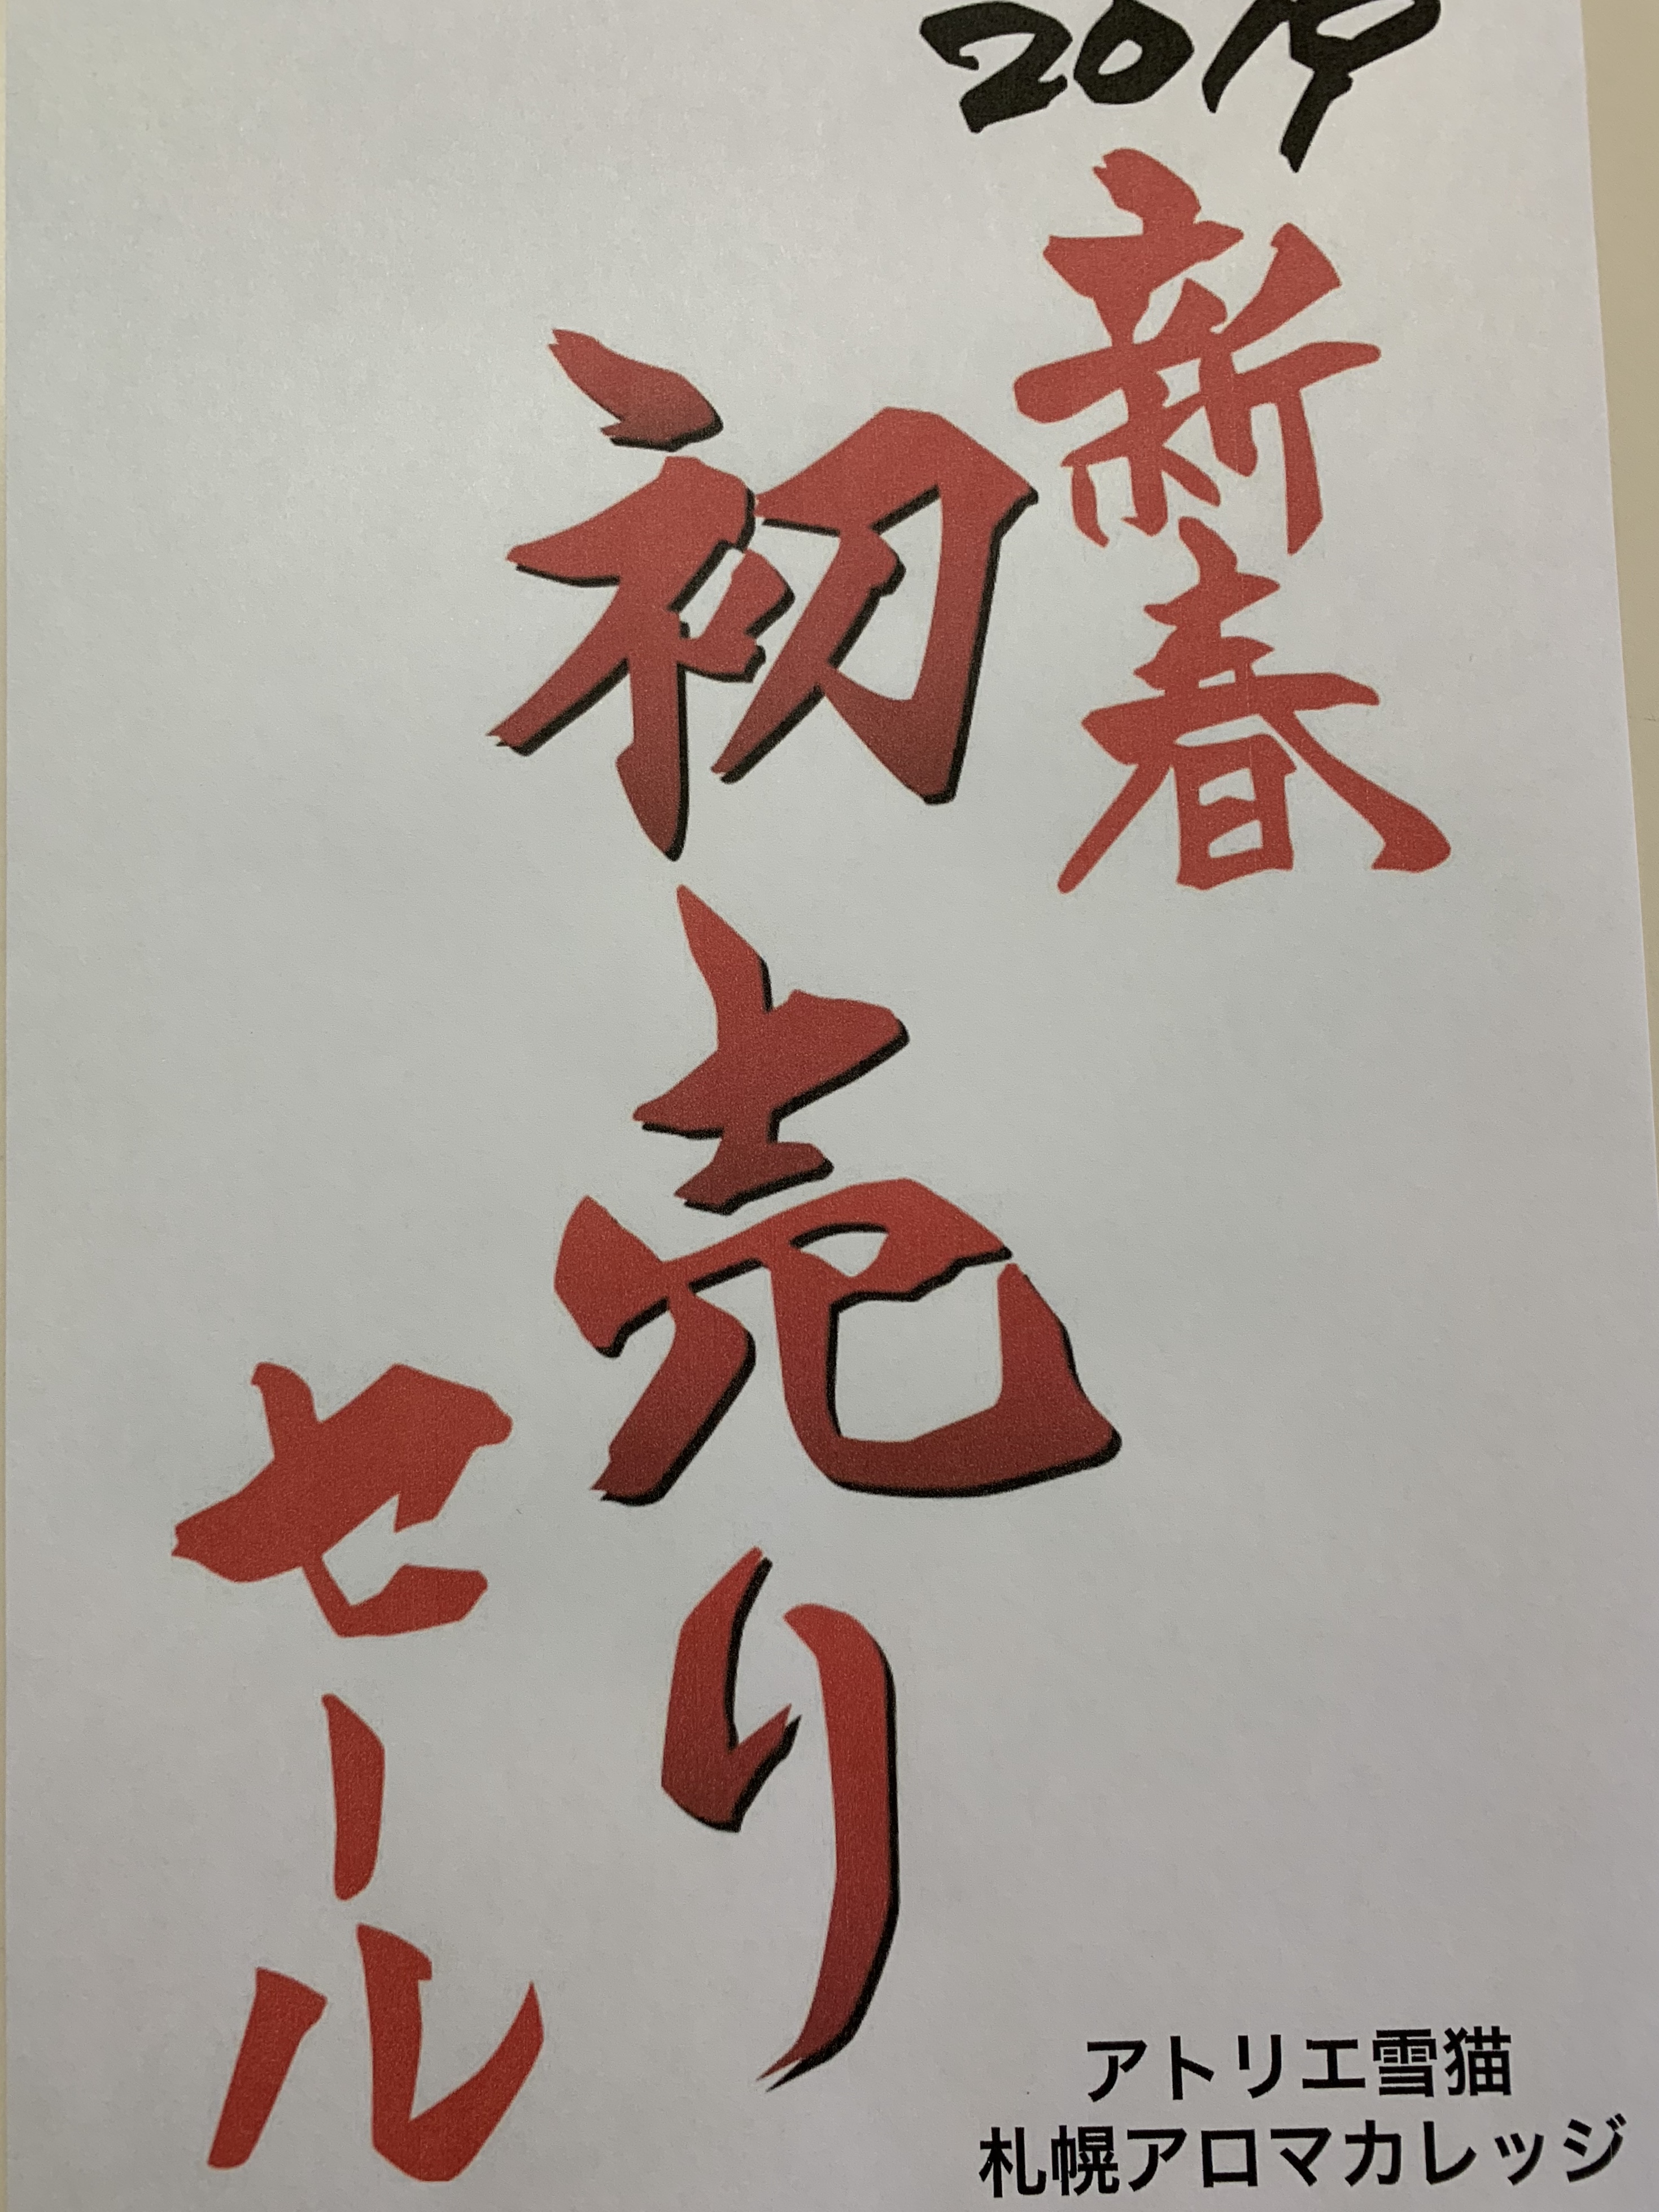 2019
新春
初売り
セール
アトリエ雪猫
札幌アロマカレッジ